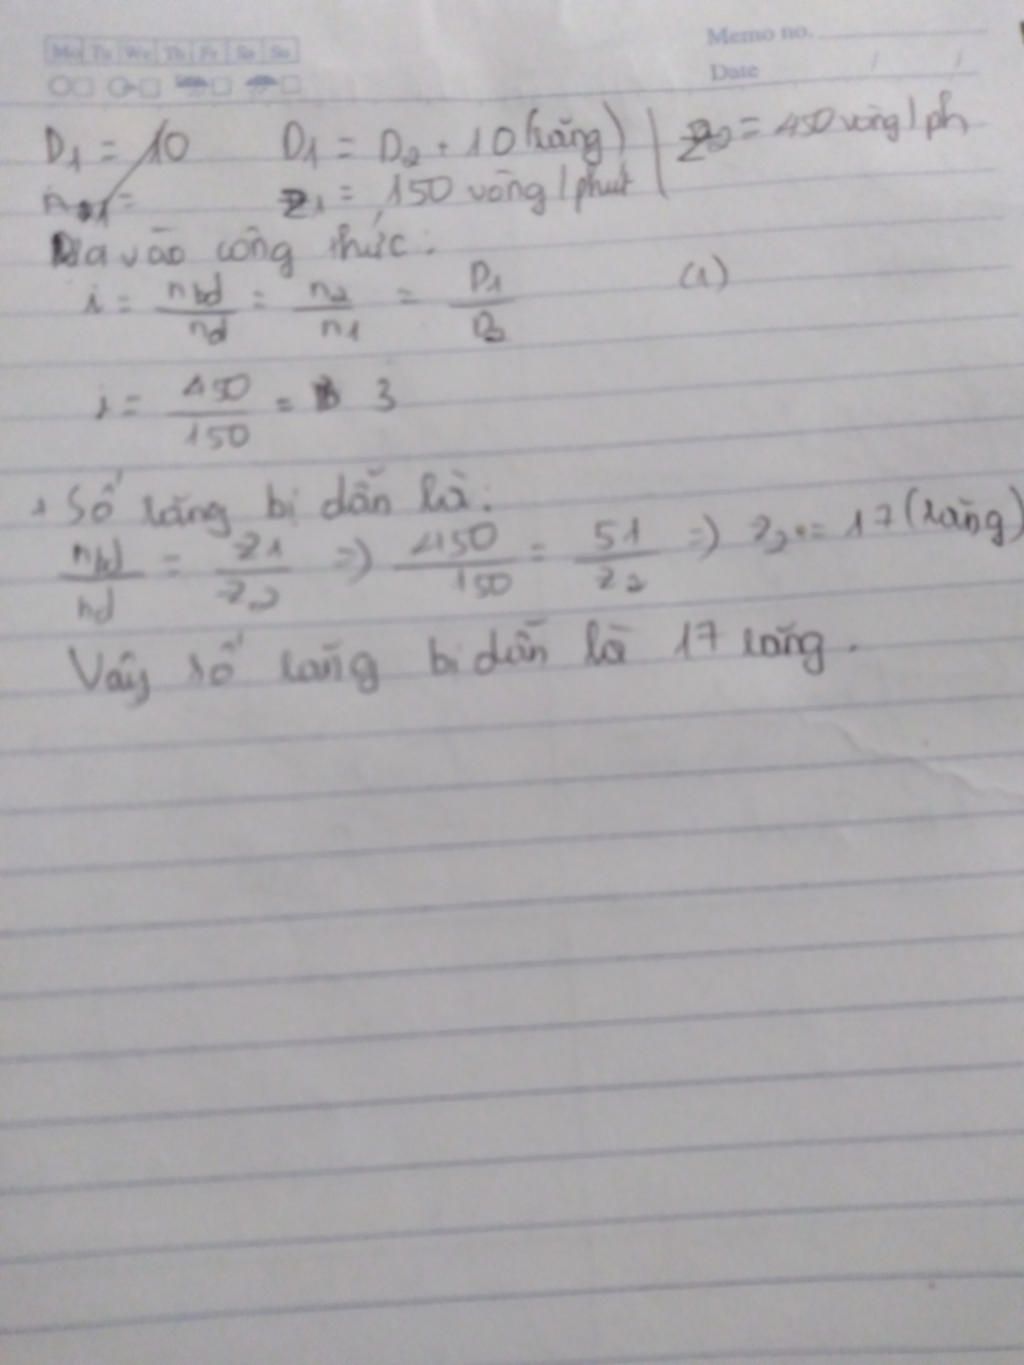 Mo Tu We Th Fr Sa Su
Memo no.
Date / /
D1 = 10 D1 = D2 + 10 (răng) | Z2 = 450 vòng/ph
Z1 = 150 vòng/phút
Dựa vào công thức:
i = nbd/nd = n2/n1 = D1/D2 (1)
i = 450/150 = 3
+ Số răng bị dẫn là:
nbd/nd = Z1/Z2 => 450/150 = 51/Z2 => Z2 = 17 (răng)
Vậy số răng bị dẫn là 17 răng.